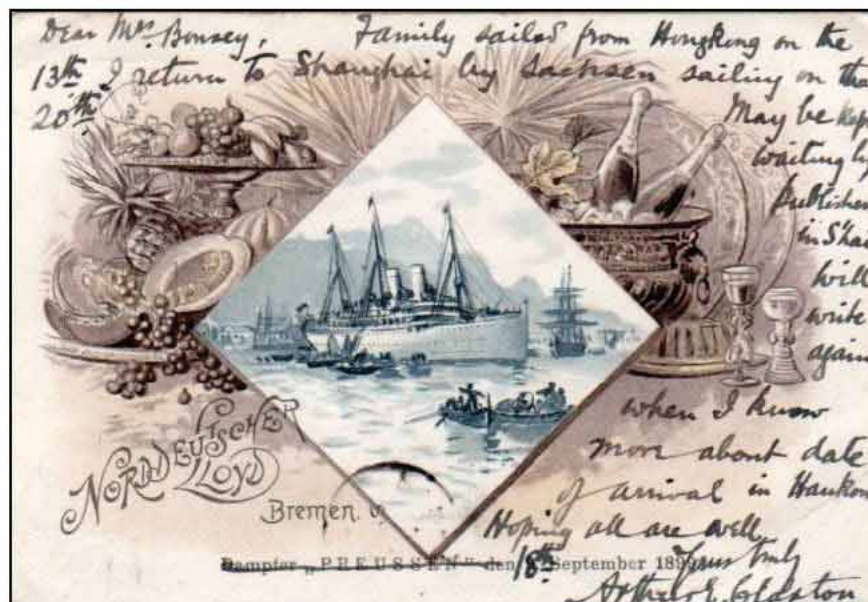 Dear Mrs. Bonsey, Family sailed from Hongkong on the
13th I return to Shanghai by Sachsen sailing on the
20th. May be kept
waiting by
Publishers
in S'hai
Will
write
again
when I know
more about date
of arrival in Hankow
Hoping all are well
Yours truly
Arthur E. Claxton
NORDDEUTSCHER
LLOYD
Bremen.
Dampfer „PREUSSEN" den 18th September 1899